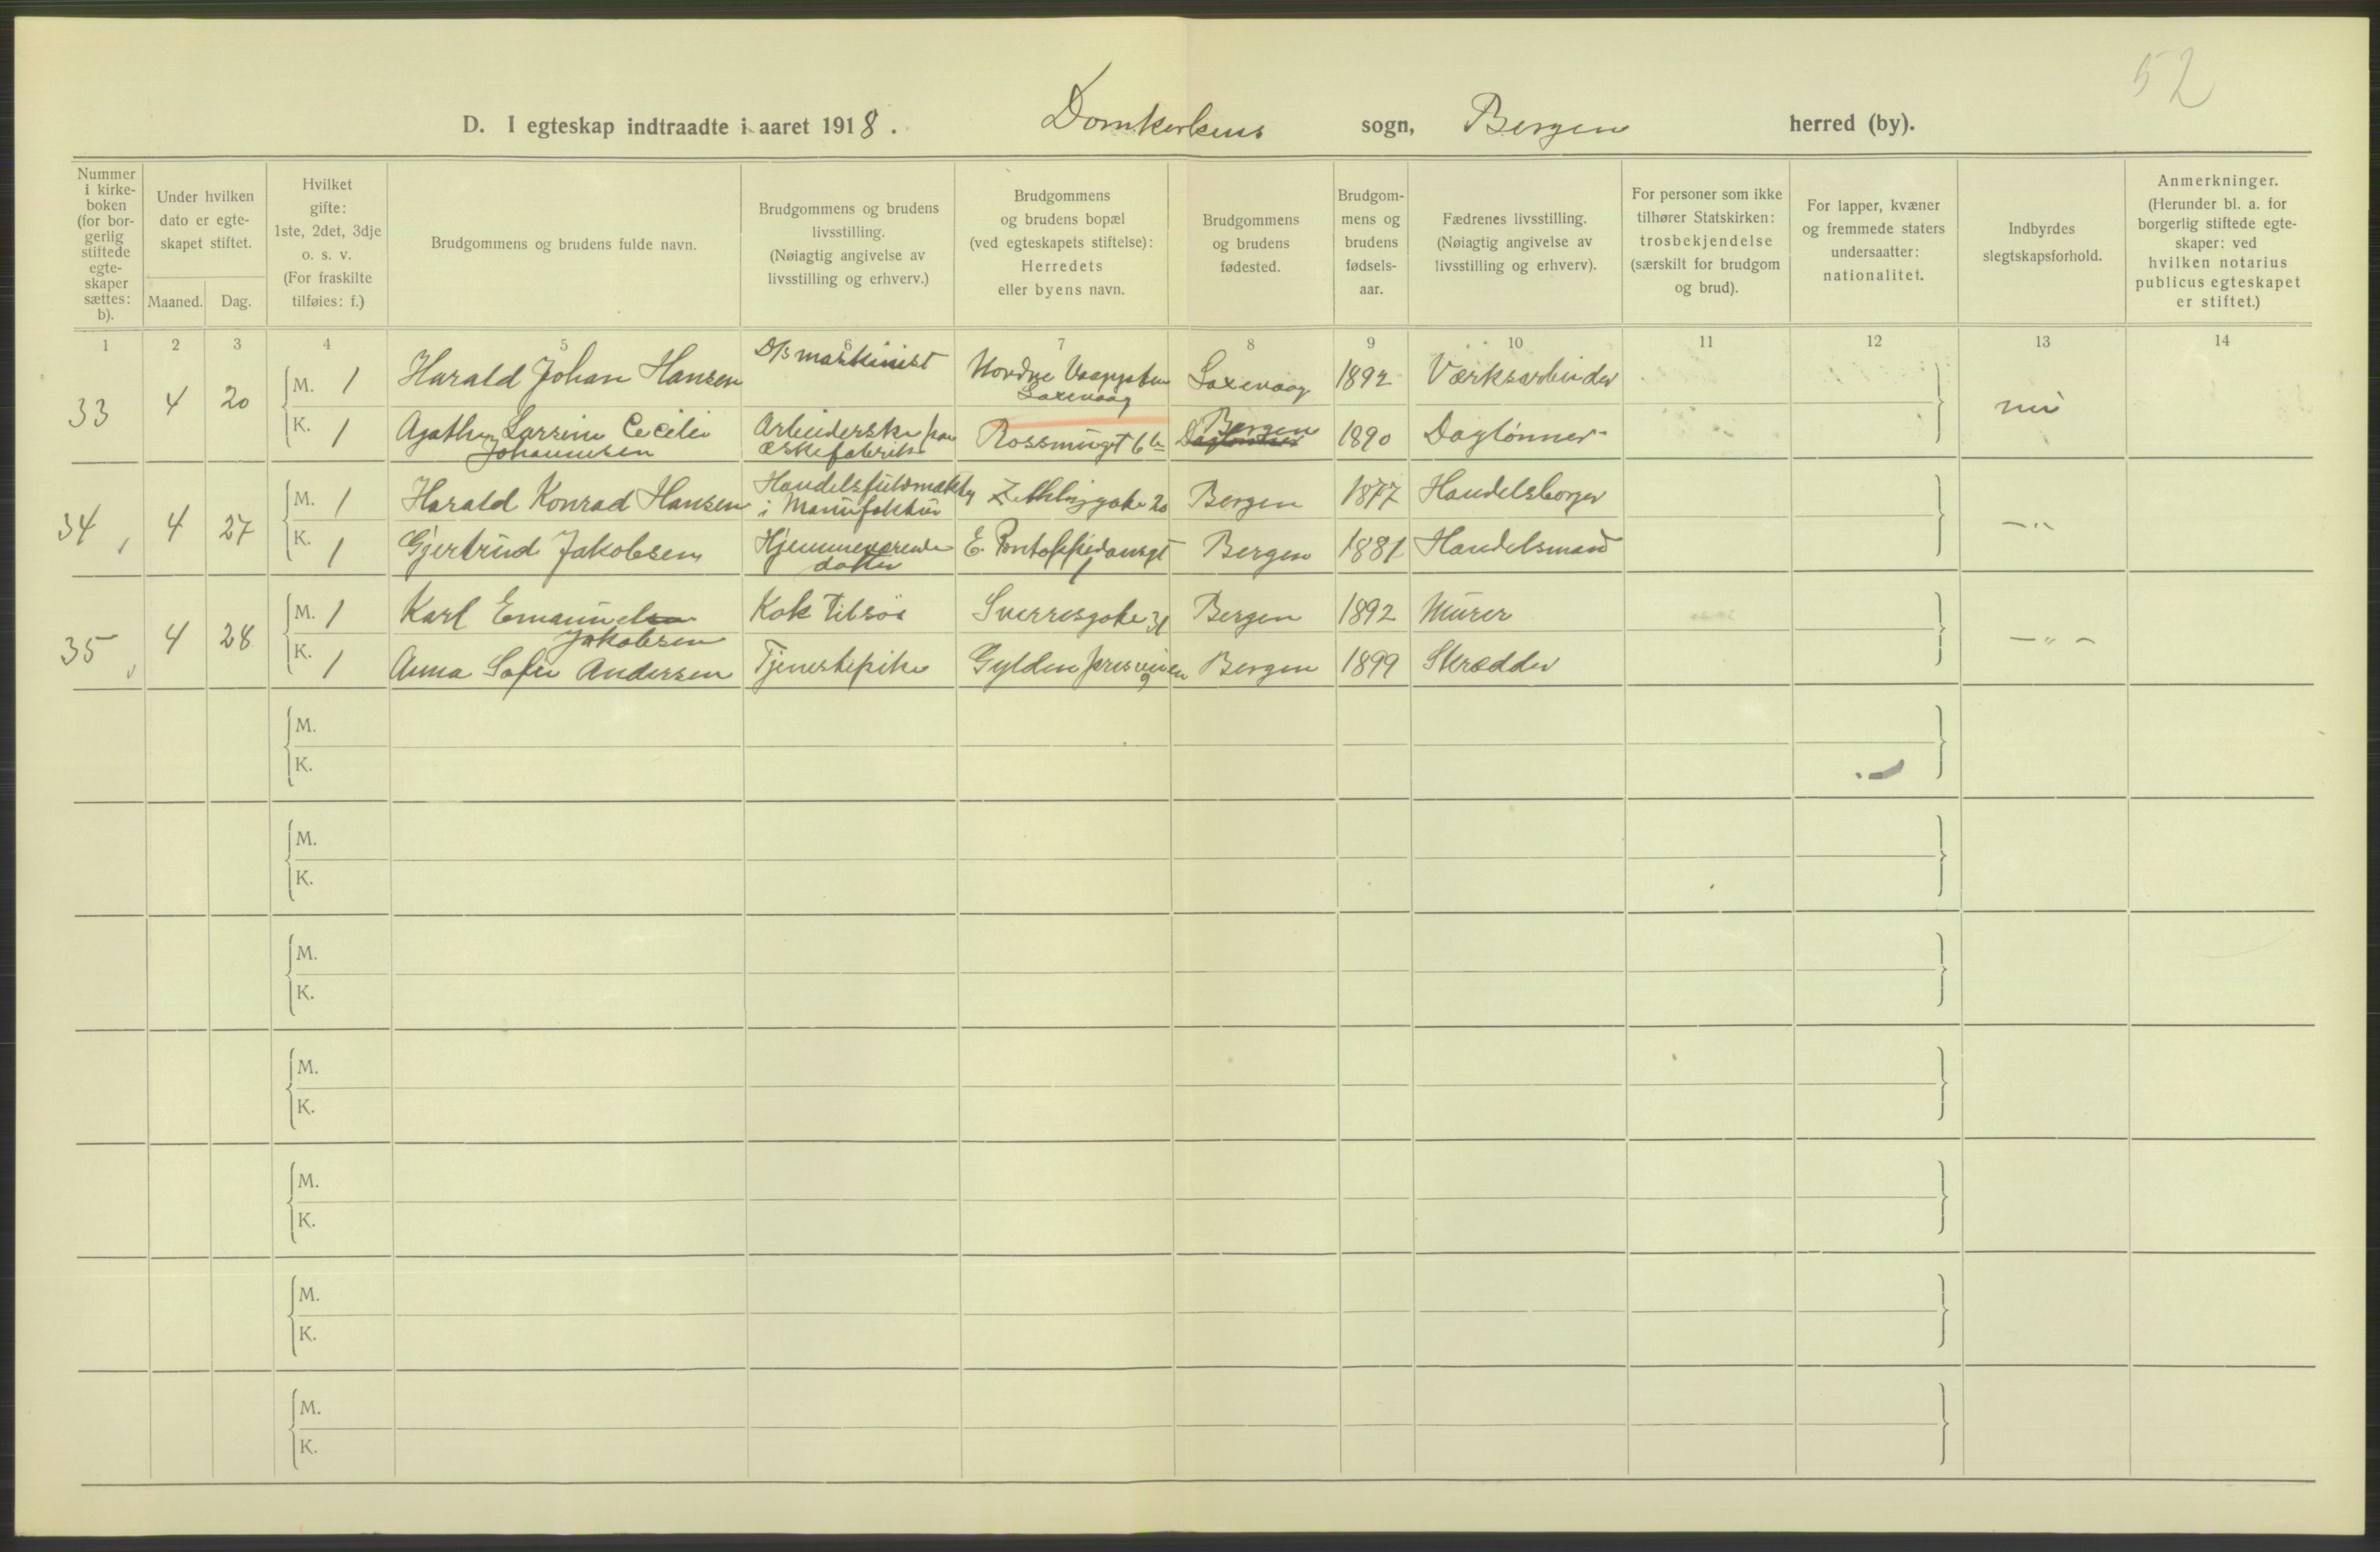 52
D. I egteskap indtraadte i aaret 1918. Domkirkens sogn, Bergen herred (by).
Nummer
i kirke-
boken
(for bor-
gerlig
stiftede
egte-
skaper
sættes:
b).
Under hvilken
dato er egte-
skapet stiftet.
Maaned. Dag.
Hvilket
gifte:
1ste, 2det, 3dje
o. s. v.
(For fraskilte
tilføies: f.)
Brudgommens og brudens fulde navn.
Brudgommens og brudens
livsstilling.
(Nøiagtig angivelse av
livsstilling og erhverv.)
Brudgommens
og brudens bopæl
(ved egteskapets stiftelse):
Herredets
eller byens navn.
Brudgommens
og brudens
fødested.
Brudgom-
mens og
brudens
fødsels-
aar.
Fædrenes livsstilling.
(Nøiagtig angivelse av
livsstilling og erhverv).
For personer som ikke
tilhører Statskirken:
trosbekjendelse
(særskilt for brudgom
og brud).
For lapper, kvæner
og fremmede staters
undersaatter:
nationalitet.
Indbyrdes
slegtskapsforhold.
Anmerkninger.
(Herunder bl. a. for
borgerlig stiftede egte-
skaper: ved
hvilken notarius
publicus egteskapet
er stiftet.)
1 2 3 4 5 6 7 8 9 10 11 12 13 14
33 4 20 M. 1 Harald Johan Hansen D/s maskinist Nordre Laxevaag Laxevaag 1892 Værksarbeider nei
K. 1 Agathe Larsine Cecilie Johannesen Arbeiderske paa Eskefabrik Rosesmugt 6b Daglønner Bergen 1890 Daglønner
34 4 27 M. 1 Harald Konrad Hansen Handelsfuldmægtig i Manufaktur Zetlitzgate 20 Bergen 1877 Handelsborger —"—
K. 1 Gjertrud Jakobsen Hjemmeværende datter E. Pontoppidansgt 1 Bergen 1881 Handelsmand
35 4 28 M. 1 Karl Emanuel Jakobsen Kok tilsøs Sverresgate 31 Bergen 1892 Murer —"—
K. 1 Anna Sofie Andersen Tjenestepike Gyldenprisveien 9 Bergen 1899 Skrædder
M.
K.
M.
K.
M.
K.
M.
K.
M.
K.
M.
K.
M.
K.